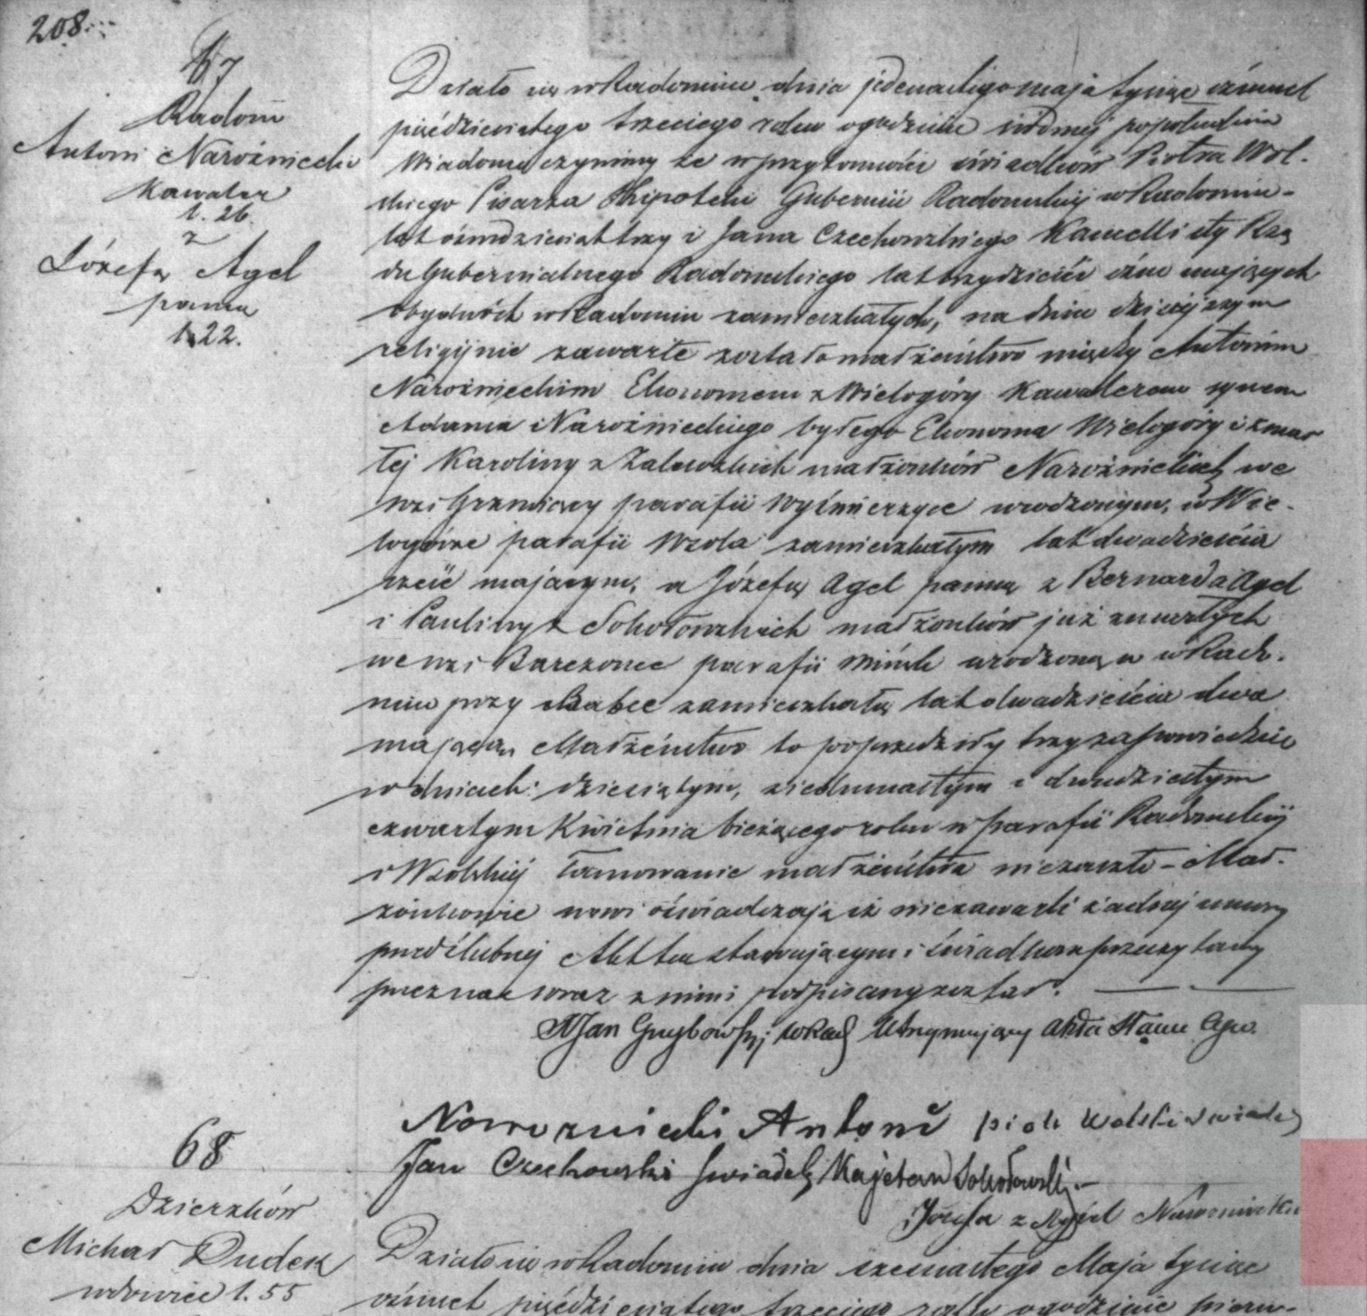 208
67
Radom
Antoni Narożniecki
Kawaler
l. 26.
z
Józefą Agel
panna
l. 22.
Działo się w Radomiu dnia jedenastego maja tysiąc ośmset
pięćdziesiątego trzeciego roku o godzinie siódmej popołudniu
Wiadomo czynimy że w przytomności świadków Piotra Wol-
skiego Pisarza Hipoteki Gubernii Radomskiej w Radomiu
lat ośmdziesiąt trzy i Jana Czechowskiego Kancellisty Rzą
du Gubernialnego Radomskiego lat trzydzieści ośm mających
obydwóch w Radomiu zamieszkałych, na dniu dzisiejszym
religijnie zawarte zostało małżeństwo między Antonim
Narożnieckim Ekonomem z Wielogóry Kawalerem synem
Adama Narożnieckiego byłego Ekonoma Wielogóry i zmar
łej Karoliny z Zalewskich małżonków Narożnieckich we
wsi Grzmiący parafii Wyśmierzyce urodzonym, w Wie-
logórze parafii Wsola zamieszkałym lat dwadzieścia
sześć mającym, a Józefą Agel panną z Bernarda Agel
i Pauliny z Sokołowskich małżonków już zmarłych
we wsi parafii Mińsk urodzoną a w Rado-
miu przy Babce zamieszkałą lat dwadzieścia dwa
mającą, Małżeństwo to poprzedziły trzy zapowiedzie
w dniach: dziesiątym, siedmnastym i dwudziestym
czwartym Kwietnia bieżącego roku w parafii Radomskiej
i Wsolskiej Tamowanie małżeństwa niezaszło - Mał-
żonkowie nowi oświadczają iż niezawarli żadnej umowy
przedślubnej Akt ten stawającym i świadkom przeczytany
przeznas wraz z nimi podpisany został.
XJan Grzybowski w Rad Utrzymujący Akta Stanu Cyw.
Nawrozniecki Antoni Piotr Wolski Swiadek
Jan Czechowski Swiadek Kajetan Sokołowski
Józefa z Agiel Nawroznicka
68
Dzierzków
Michał Dudek
wdowiec l. 55
Działo się w Radomiu dnia szesnastego Maja tysiąc
ośmset pięćdziesiątego trzeciego roku o godzinie